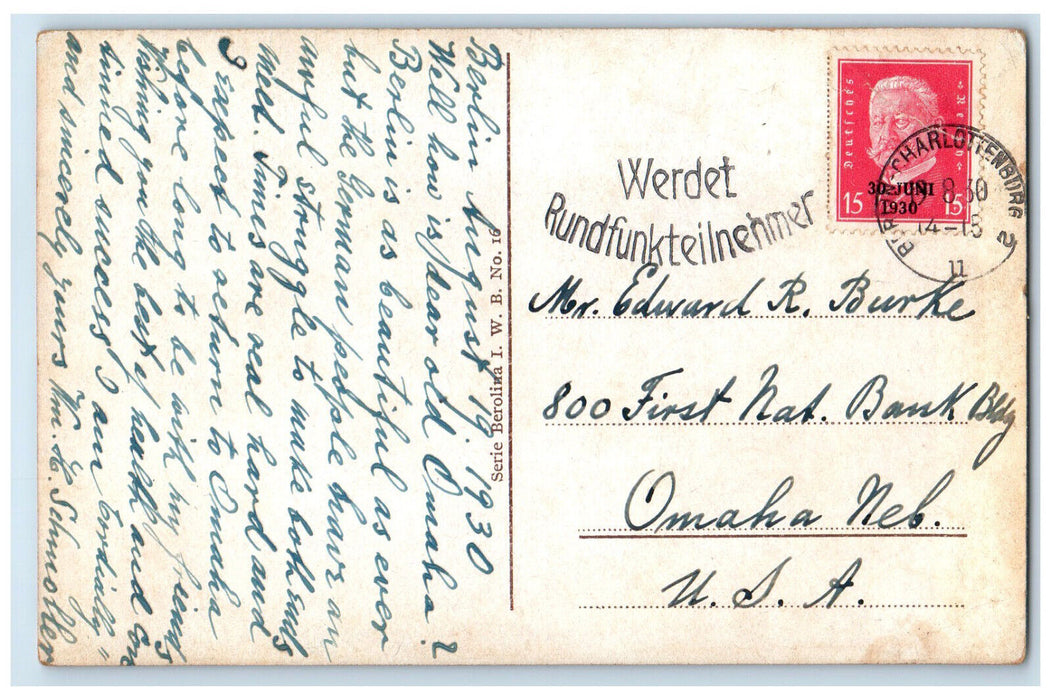 Berlin August 19. 1930
Well how is dear old Omaha?
Berlin is as beautiful as ever
but the German people have an
awful struggle to make both ends
meet. Times are real hard and
I expect to return to Omaha
before long to be with my friends
Wishing you the best of health and con-
tinued success I am cordially
and sincerely yours Wm. E. Schmoller
Serie Berolina I. W. B. No. 16
Werdet
Rundfunkteilnehmer
Deutsches Reich
15 15
30. JUNI
1930
CHARLOTTENBURG 2
8.30
14-15
11
Mr. Edward R. Burke
800 First Nat. Bank Bldg
Omaha Neb.
U. S. A.